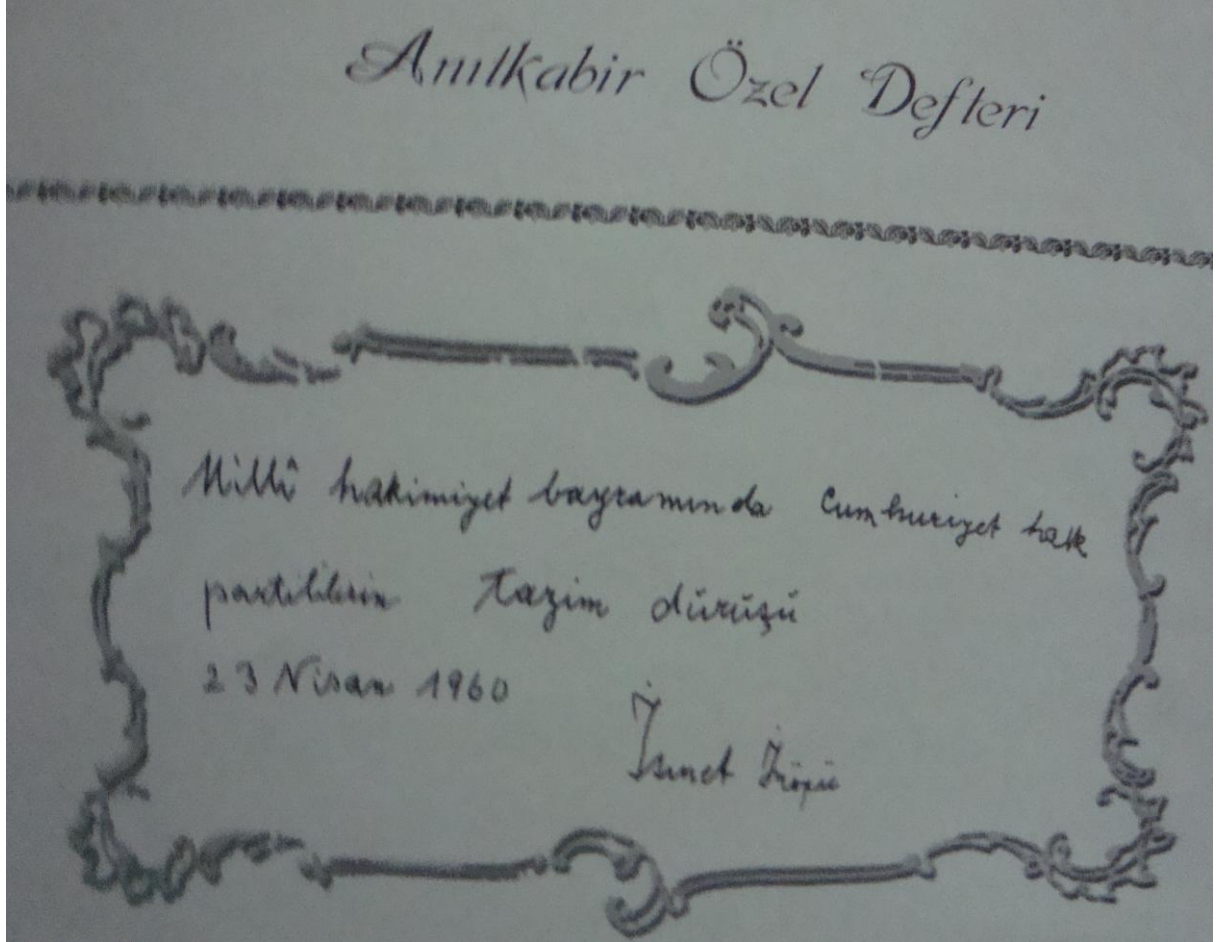 Anıtkabir Özel Defteri
Millî hakimiyet bayramında Cumhuriyet halk
partililerin tazim dürüşü
23 Nisan 1960
İsmet İnönü